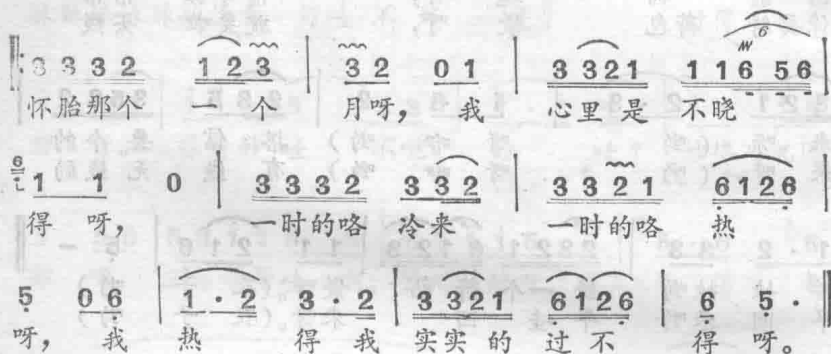 3 3 3 2 1 2 3 3 2 0 1 3 3 2 1 1 1 6 5 6
怀胎那个 一 个 月呀, 我 心里是 不晓
1 1 0 3 3 3 2 3 3 2 3 3 2 1 6 1 2 6
得 呀, 一时的咯 冷来 一时的咯 热
5 0 6 1 · 2 3 · 2 3 3 2 1 6 1 2 6 6 5 ·
呀, 我 热 得 我 实实的 过不 得 呀。